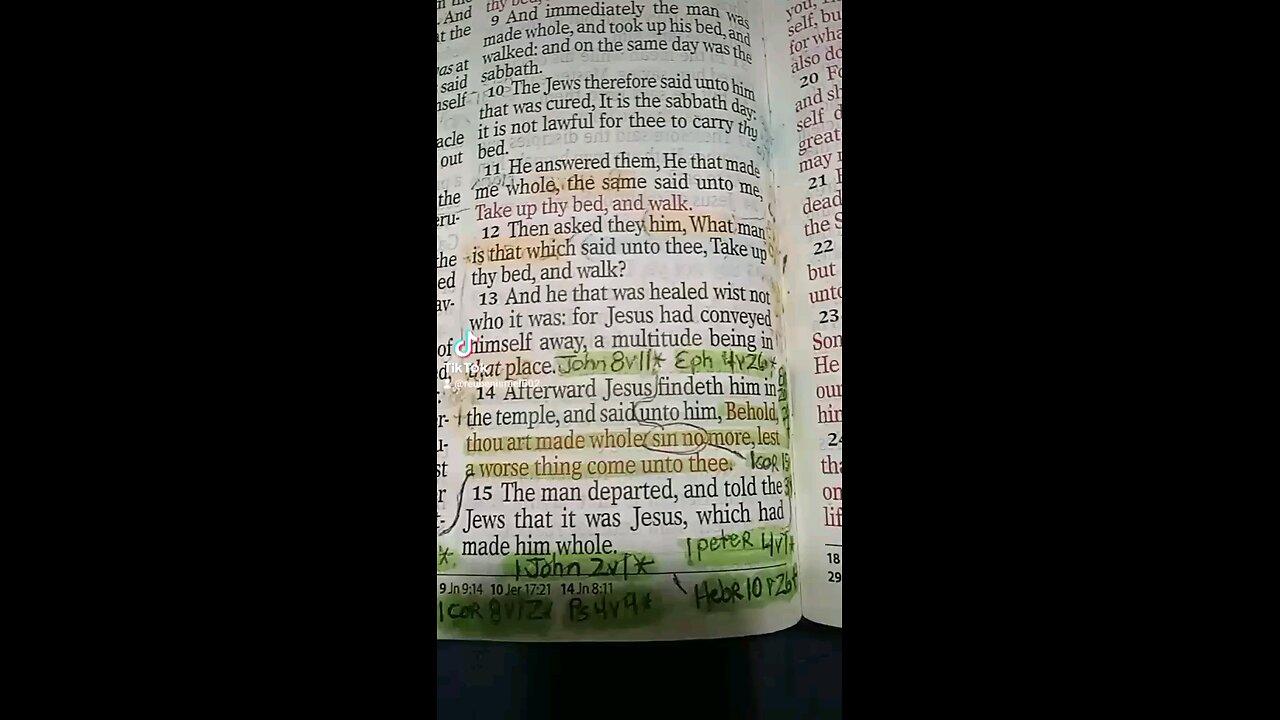 thy bed,
9 And immediately the man was
made whole, and took up his bed, and
walked: and on the same day was the
sabbath.
10 The Jews therefore said unto him
that was cured, It is the sabbath day:
it is not lawful for thee to carry thy
bed.
11 He answered them, He that made
me whole, the same said unto me,
Take up thy bed, and walk.
12 Then asked they him, What man
is that which said unto thee, Take up
thy bed, and walk?
13 And he that was healed wist not
who it was: for Jesus had conveyed
himself away, a multitude being in
that place. John 8v11* Eph 4v26*
14 Afterward Jesus findeth him in
the temple, and said unto him, Behold,
thou art made whole: sin no more, lest
a worse thing come unto thee. 1cor 15
15 The man departed, and told the
Jews that it was Jesus, which had
made him whole. 1 peter 4v1*
1 John 2v1*
9 Jn 9:14 10 Jer 17:21 14 Jn 8:11
Hebr 10v26*
1 cor 8v12* Ps 4v4*
And
at the
was at
said
out
the
of
you,
self, but
for wha
also do
20
and sh
self
great
may
21
dead
the S
22
but
unto
23
Son
He
our
him
24
tha
on
lif
18
29
TikTok